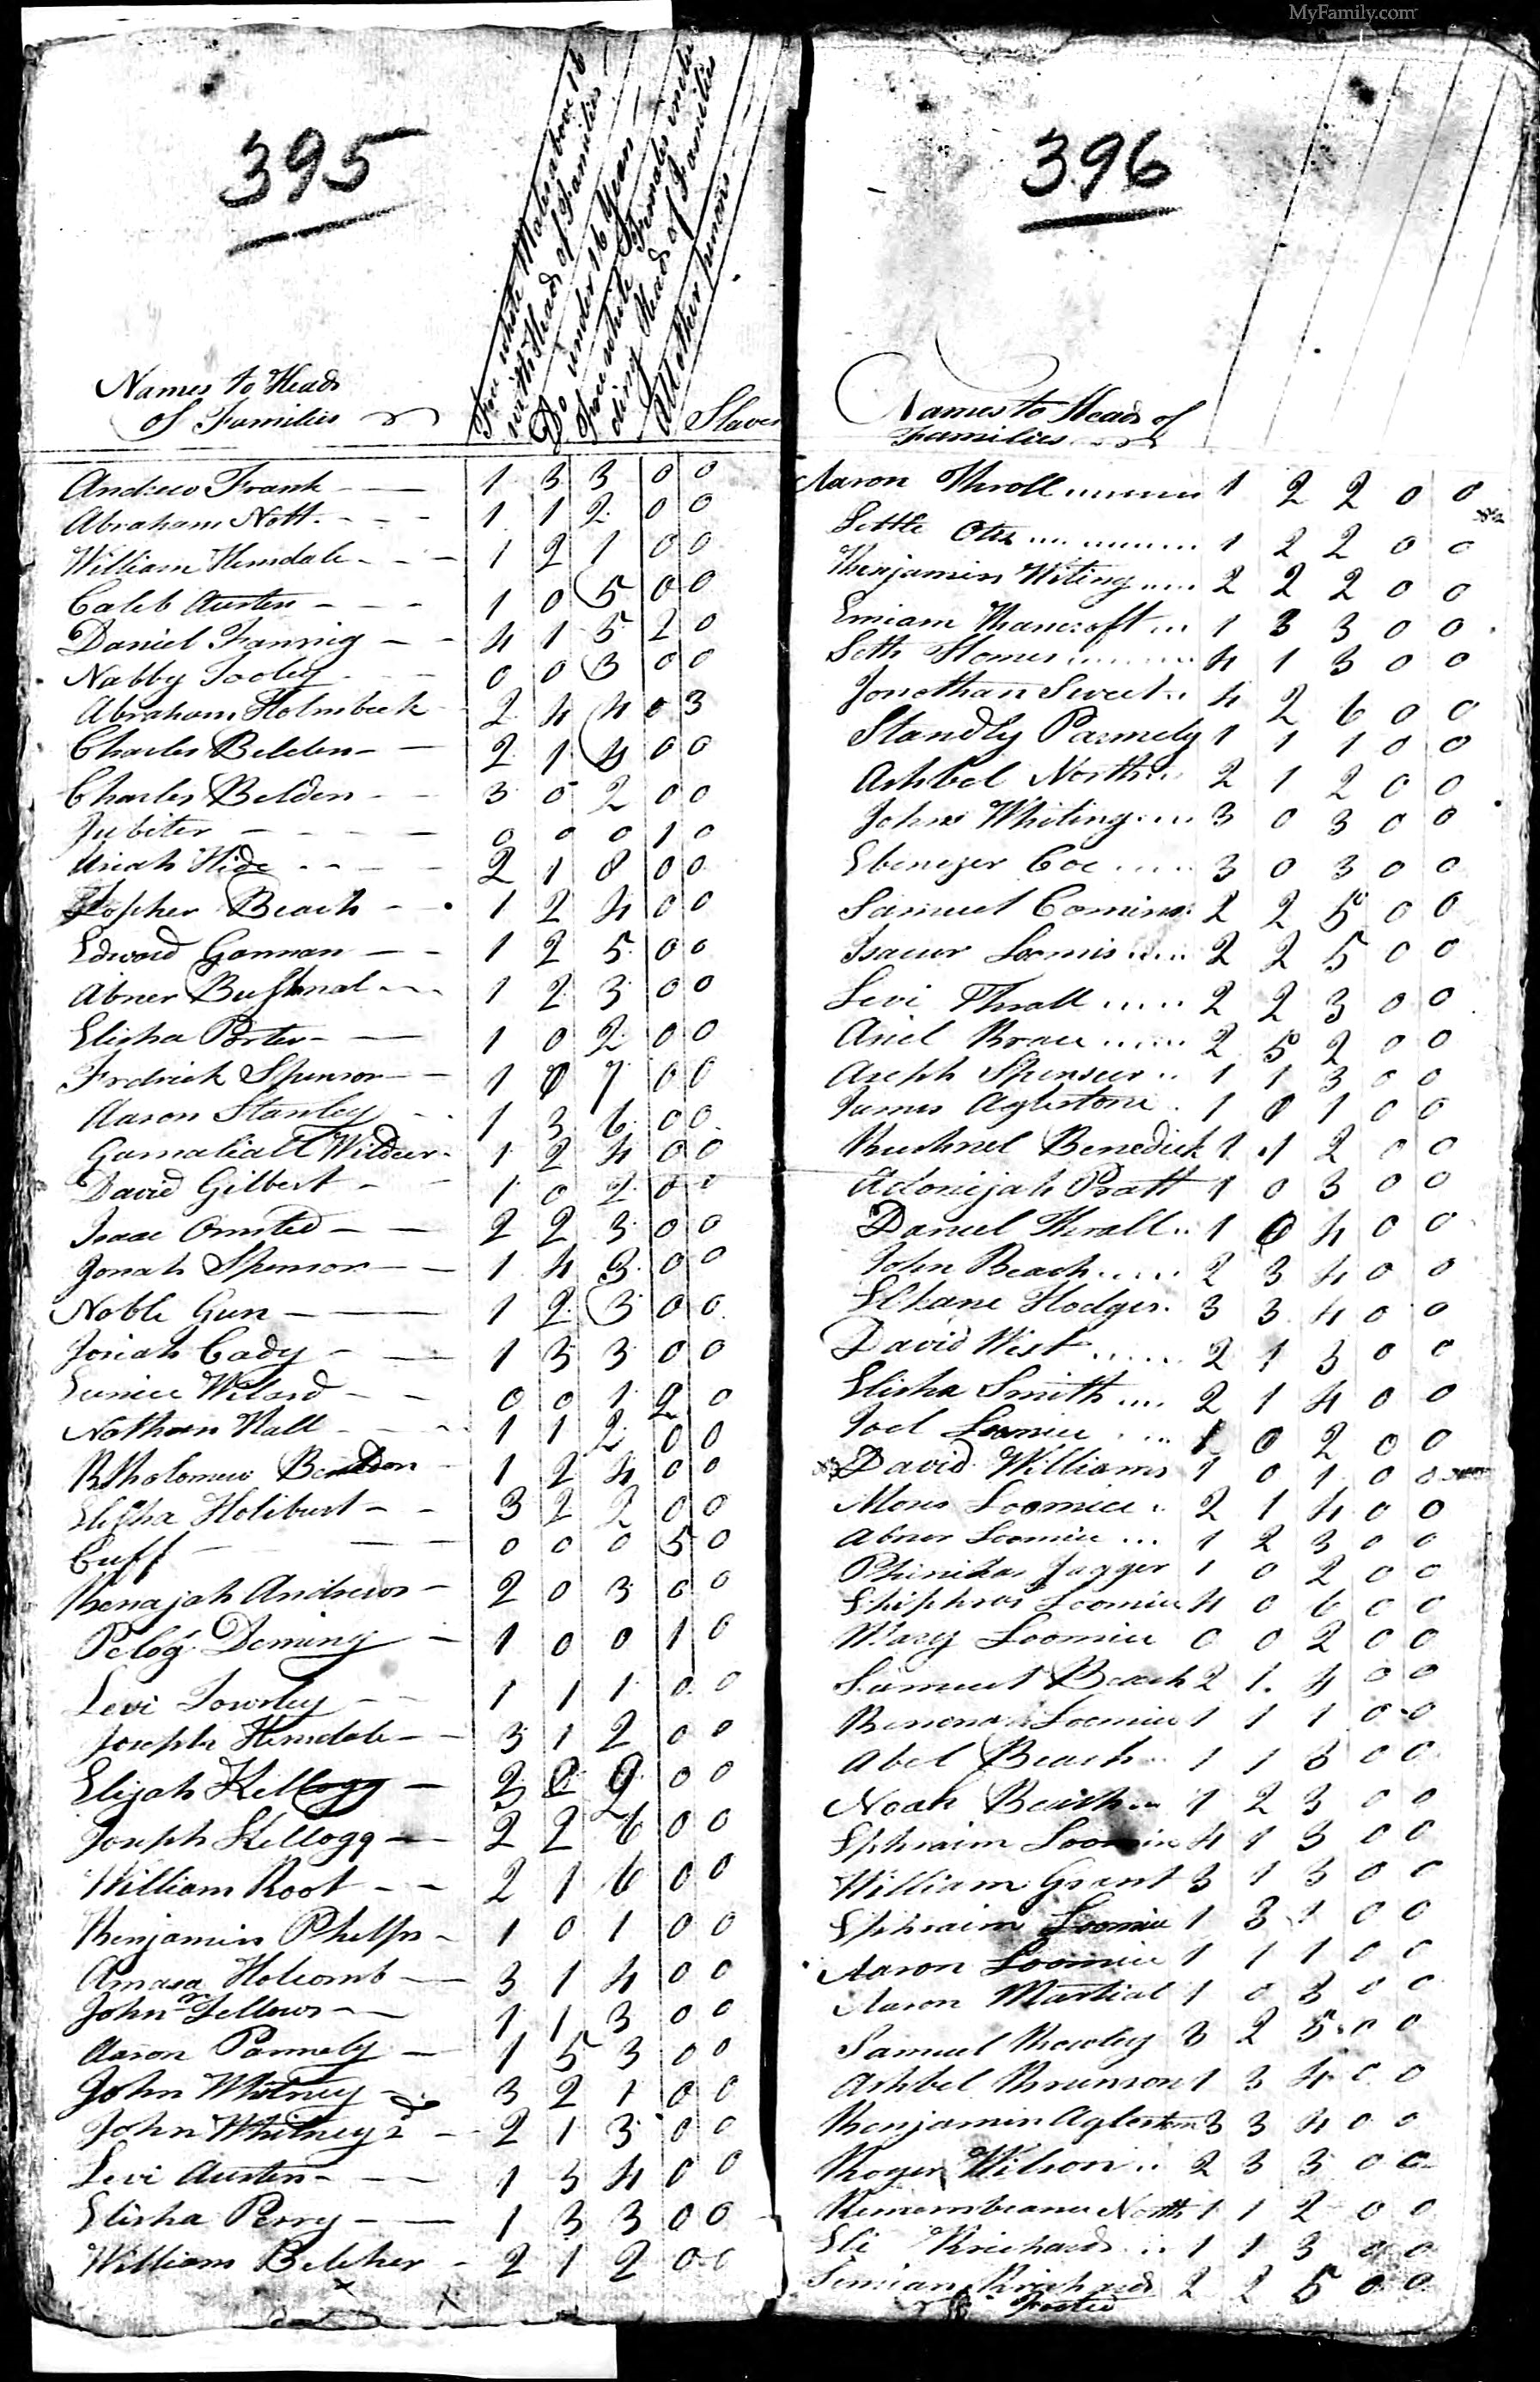 MyFamily.com
395
Free white Males above 16
with Heads of Families
Do under 16 Years
Free white Females inclu
ding Heads of Families
All other persons
Slaves
Names to Heads
of Families
Andrew Frank 1 3 3 0 0
Abraham Nott 1 1 2 0 0
William Hemsdale 1 2 1 0 0
Caleb Austen 1 0 5 0 0
Daniel Fanning 4 1 5 2 0
Nabby Tooley 0 0 3 0 0
Abraham Holmbeck 2 4 4 0 3
Charles Belden 2 1 4 0 0
Charles Belden 3 0 2 0 0
Jubiter 0 0 0 1 0
Uriah Hide 2 1 8 0 0
Topher Beach 1 2 4 0 0
Edward Gannan 1 2 5 0 0
Abner Bushnal 1 2 3 0 0
Elisha Porter 1 0 2 0 0
Frdrick Spenson 1 0 7 0 0
Aaron Stanley 1 3 6 0 0
Gamaliall Wilder 1 2 4 0 0
David Gilbert 1 0 2 0 0
Isaac Omsted 2 2 3 0 0
Jonah Spenson 1 4 3 0 0
Noble Gun 1 2 3 0 0
Josiah Cady 1 3 3 0 0
Eunice Wilard 0 0 1 2 0
Nathan Hall 1 1 2 0 0
Btholomew 1 2 4 0 0
Elisha Holiburt 3 2 2 0 0
Cuff 0 0 0 5 0
Benajah Andrews 2 0 3 0 0
Pelög Deming 1 0 0 1 0
Levi Towsley 1 1 1 0 0
Joseph Hemsdale 3 1 2 0 0
Elijah Kellogg 0 0
Joseph Kellogg 2 2 6 0 0
William Root 2 1 6 0 0
Benjamin Phelps 1 0 1 0 0
Amasa Holcomb 3 1 4 0 0
John Fellows 1 1 3 0 0
Aaron Parmely 1 5 3 0 0
John Whitney 3 2 1 0 0
John Whitney 2d 2 1 3 0 0
Levi Austen 1 3 4 0 0
Elisha Perry 1 3 3 0 0
William Belcher 2 1 2 0 0
396
Names to Heads of
Families
Aaron Throll 1 2 2 0 0
Settle Otis 1 2 2 0 0
Benjamin Witing 2 2 2 0 0
Bancroft 1 3 3 0 0
Seth Homes 4 1 3 0 0
Jonathan Sweet 4 2 6 0 0
Standly Parmely 1 1 1 0 0
Ashbel North 2 1 2 0 0
John Whiting 3 0 3 0 0
Ebenezer Coe 3 0 3 0 0
Samuel Comins 2 2 5 0 0
Loomis 2 2 5 0 0
Levi Thrall 2 2 3 0 0
Ariel Brace 2 5 2 0 0
Aseph Spenseer 1 1 3 0 0
James Aglestone 1 0 1 0 0
Bushnel Benedick 1 1 2 0 0
Adonijah Pratt 1 0 3 0 0
Daniel Thrall 1 0 4 0 0
John Beach 2 3 4 0 0
Elkane Hodges 3 3 4 0 0
David West 2 1 3 0 0
Elisha Smith 2 1 4 0 0
Joel Loomice 1 0 2 0 0
David Williams 1 0 1 0 0
Moses Loomice 2 1 4 0 0
Abner Loomice 1 2 3 0 0
Phinihas Jagger 1 0 2 0 0
Loomice 4 0 6 0 0
Mary Loomice 0 0 2 0 0
Samuel Beach 2 1 4 0 0
Benona Loomice 1 1 1 0 0
Abel Beach 1 1 3 0 0
Noah Beach 1 2 3 0 0
Ephraim Loomice 4 1 3 0 0
William Grant 3 1 3 0 0
Ephraim Loomice 1 3 1 0 0
Aaron Loomice 1 1 1 0 0
Aaron Martial 1 0 3 0 0
Samuel Rowley 3 2 5 0 0
Ashbel Brunson 1 3 4 0 0
Benjamin Aglestone 3 3 4 0 0
Roger Wilson 2 3 3 0 0
Remembrance North 1 1 2 0 0
Eli Richards 1 1 3 0 0
Richards 2 2 5 0 0